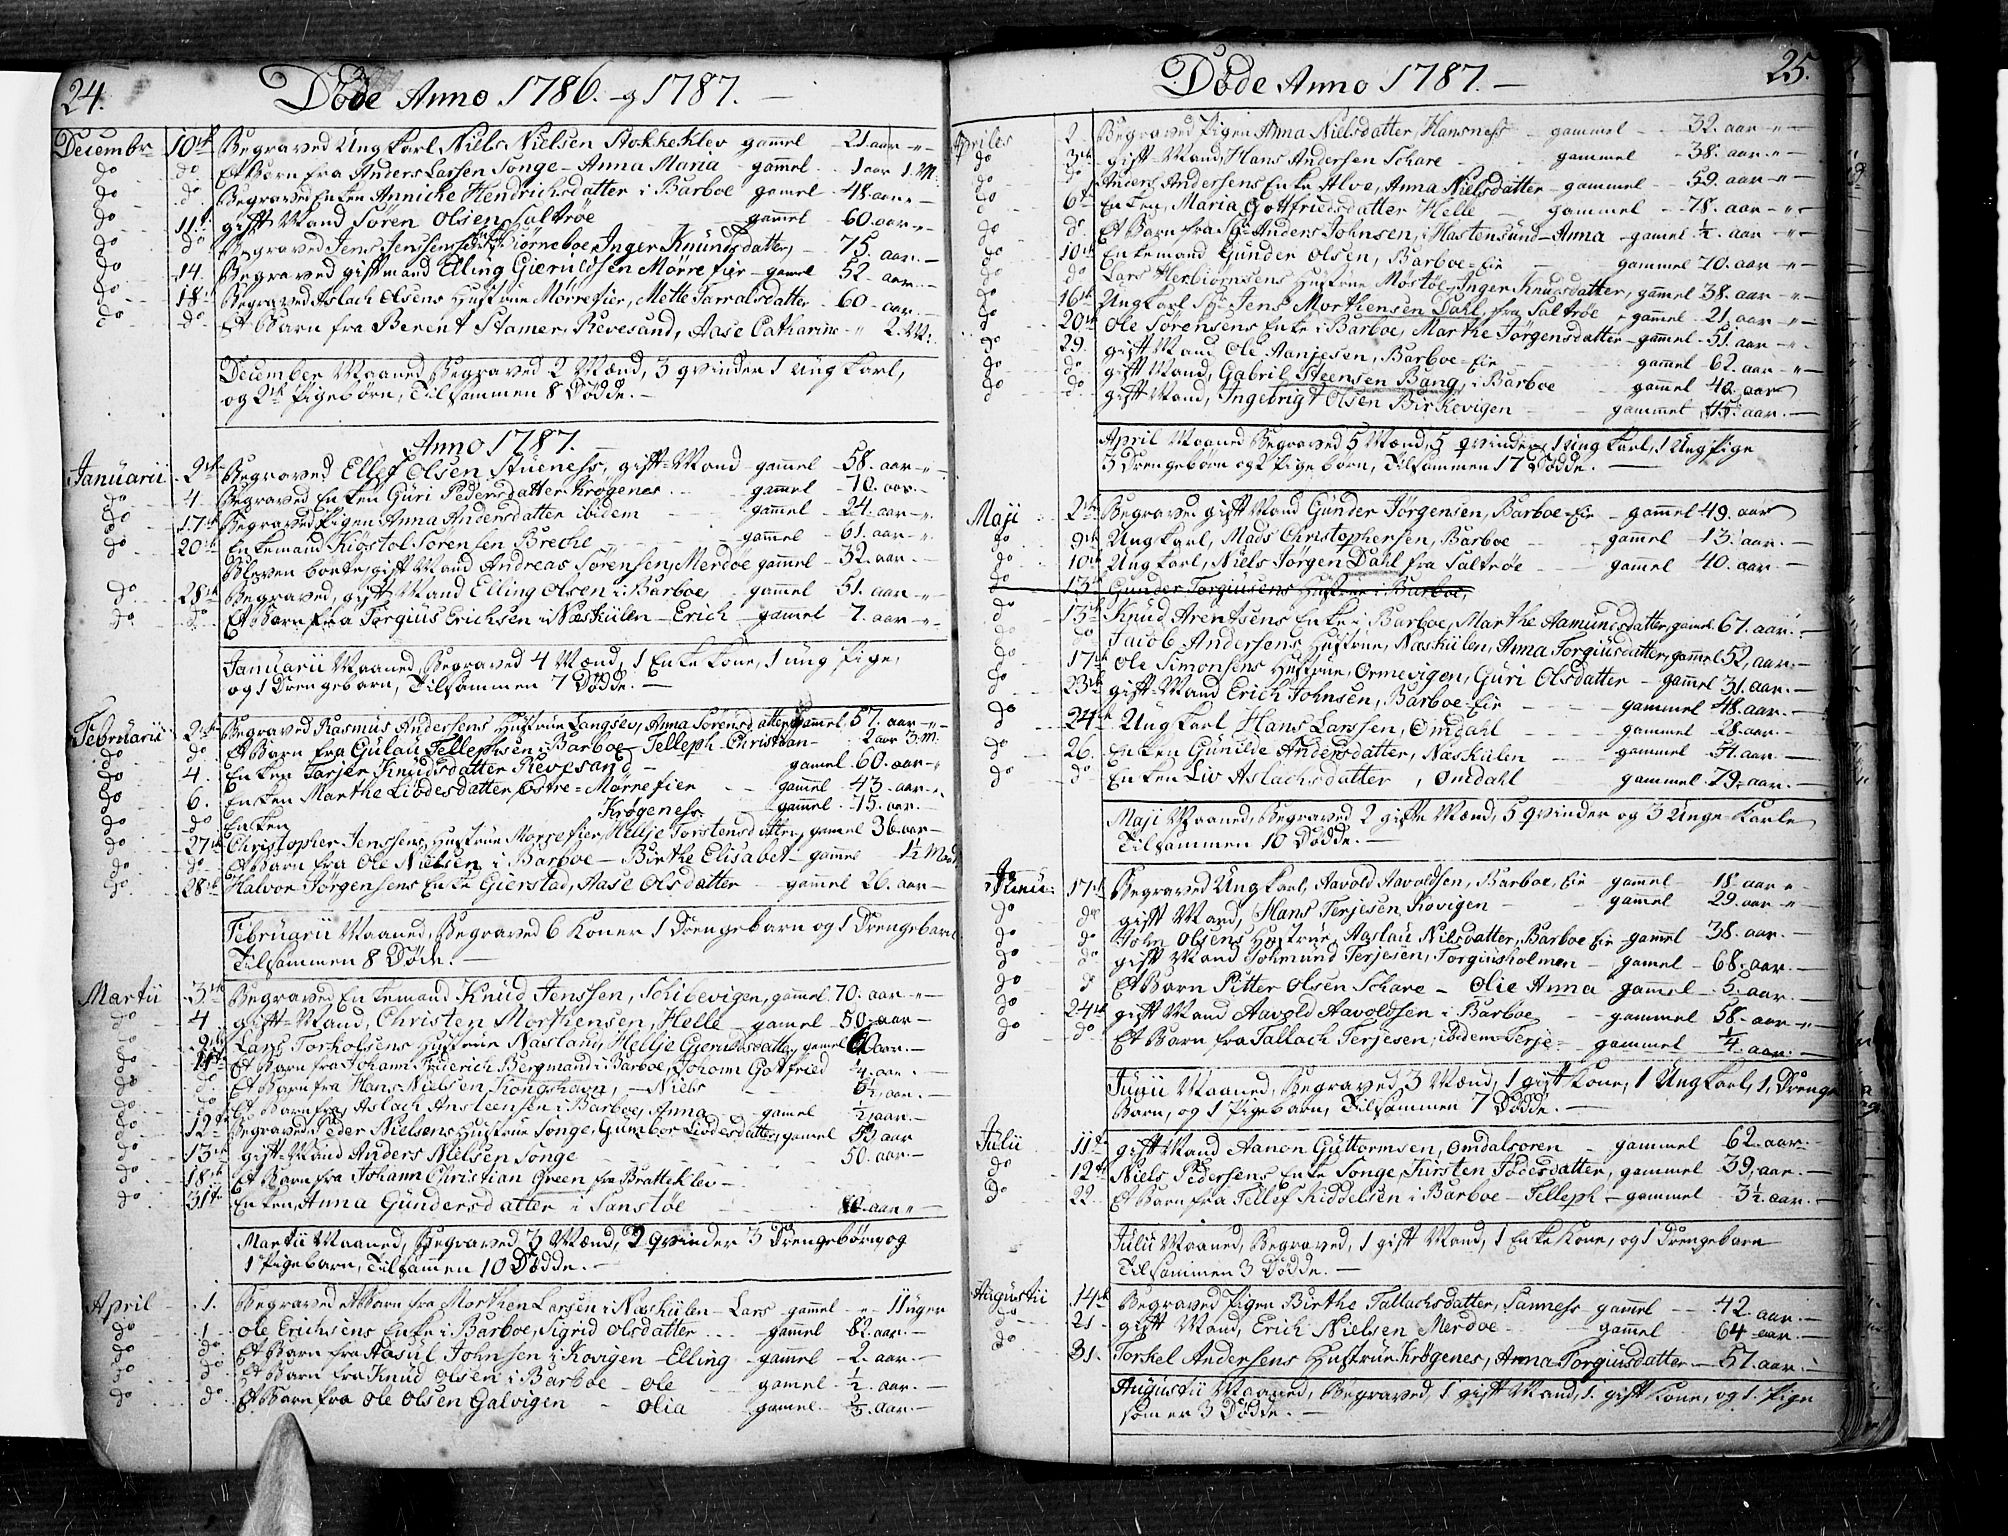 24.
Døde Anno 1786. og 1787. —
Decembr 10de Begraved Ungkarl Niels Nielsen Stokkeklev gammel — 21. aar „ —
do do Et Barn fra Anders Larsen Songe — Anna Maria gammel — 1 aar 1. M:
do do Begraved Enken Annicke Hendrichsdatter i Barboe gamel — 48. aar „ —
do 11te gift Mand Søren Olsen Saltrøe gammel 60. aar „ —
do do Begraved Jens Jenssens Enke Biørneboe, Inger Knudsdatter, — 75. aar. —
do 14. Begraved gift mand Elling Gieruldsen Mørrefier — gamel 52. aar. —
do 18de Begraved Aslach Olsens Hustrue Mørrefier, Mette Tarralsdatter — 60. aar. —
do do Et Barn fra Berent Stamer, Revesand, Aase Catharine „ 2. M:
December Maaned Begraved 2 Mænd, 3 qvinder 1 ungkarl,
og 2de Pigebørn, Tilsammen 8 Dødde. —
Anno 1787. —
Januarii 2de Begraved Ellef Olsen Stueness, gift-Mand gammel — 58. aar „
do 4. Begraved Enken Guri Pedersdatter Krøgenes — gammel — 70. aar. —
do 17de Begraved Pigen Anna Andersdatter ibidem gammel — 24. aar „
do 20de Enkemand Kiøstol Sørensen Breche gammel — 61. aar „
Bleven borte, gift Mand Andreas Sørensen, Merdøe gammel — 32. aar.
do 28de Begraved, gift Mand Elling Olsen i Barboe gammel — 51. aar „
do do Et Barn fra Torgius Erichsen i Næskilen — Erich gamel 7. aar „ —
Januarii Maaned, Begraved 4 Mænd, 1 Enke kone, 1 ung Pige,
og 1 Drengebarn, Tilsammen 7 Dødde. —
Februarii 2de Begraved Rasmus Andersens Hustrue Langsev, Anna Sørensdatter gamel 57. aar „ —
do do Et Barn fra Gulau Tellephsen i Barboe — Telleph Christian — 2 aar 3. M:
do 4. Enken Tarjer Knudsdatter Revesand — gamel 60. aar „
do 6. Enken Marthe Liødesdatter østre-Mørrefier — gammel — 43. aar „
do do Enken Krøgeness — gammel — 75. aar.
do 27de Christopher Jenssens Hustrue Mørrefier, Hellje Torstensdatter, gamel 36. aar —
do do Et Barn fra Ole Nielsen i Barboe — Birthe Elisabet — gammel 1½ Maad
do 28de Halvor Jørgensens Enke Gierstad, Aase Olsdatter — gammel 26. aar —
Februarii Maaned, Begraved 6 Koner 1 Drengebarn og 1 Drengebarn
Tilsammen 8 Døde. —
Martii 3de Begraved Enkemand Knud Jenssen, Skibevigen, gamel 70. aar „ —
do 4 gift-Mand, Christen Morthensen, Helle — gamel — 50. aar —
Lars Torkolsens Hustrue Næsland, Hellje Gieruldsdatter, gamel 60 aar. —
do 11te Et Barn fra Johann Friderich Bergmand i Barboe, Johann Gotfried ¼. aar. —
do do Et Barn fra Hans Nielsen Kongshavn, — Niels — 5½. aar. —
do do Et Barn fra Aslach Ansteensen i Barboe, Anna gamel ½. aar. —
do 12te Begraved Peder Nielsens Hustrue Songe, Gumbor Liødesdatter, gamel 53 aar
do 13de gift Mand Anders Nielsen Songe 50. aar. —
do 18de Et Barn fra Johann Christian Green fra Bratteklev —
do 31te Enken, Anna Gundersdatter i Sanstøe — aar „ —
Martii Maaned, Begraved 3 Mænd, 2 qvinder 3 Drengebørn, og
1 Pigebarn, Tilsamen 10 Dødde. —
April 1. Begraved et Barn fra Morthen Larsen i Næskilen — Lars gammel — „ 11 uger
do 1 Ole Erichsens Enke i Barboe, Sigrid Olsdatter — gammel 82. aar. —
do do Et Barn fra Aasul Johnsen i Kovigen — Elling — gammel — 2. aar. —
do do Et Barn fra Knud Olsen i Barboe — Ole gamel — ½. aar. —
do do Et Barn fra Ole Olsen Galvigen — Olia gammel — ⅓. aar. —
25.
Døde Anno 1787. —
Apriles 2. Begraved Pigen Anna Nielsdatter, Hansness — gammel — 32. aar „ —
do 3de gift-Mand, Hans Andersen Schare gammel — 38. aar „ —
do do Anders Andersens Enke Alve, Anna Nielsdatter — gammel — 59. aar „ —
do 6te Enken, Maria Gottfriedsdatter Helle — gammel — 78. aar „ —
do do Et Barn fra Sr Anders Johnsen, i Hastensund — Anna — gamel ½. aar „ —
do 10de Enkemand Gunder Olsen, Barboe-Eie gammel 70. aar „ —
do do Lars Herbiørnsens Hustrue Møstøl, Inger Knudsdatter, gamel 38. aar „ —
do 16de Ungkarl Sr Jens Morthensen Dahl, fra Saltrøe — gammel — 21. aar „ —
do 20de Ole Sørensens Enke i Barboe, Marthe Jørgensdatter — gammel — 51. aar — „
do 29. gift Mand Ole Aanjesen, Barboe-Eie gammel 62. aar „ —
do do gift Mand, Gabril Steensen Bang, i Barboe gammel 40. aar
do do gift Mand, Ingebrigt Olsen Birkevigen gammel 45. aar. —
April Maaned Begraved 5 Mænd, 5 qvinder, 1 ungkarl, 1 Ung Pige
3 Drengebørn og 2 Pigebørn, Tilsammen 17 Dødde. —
Maji 2de Begraved gift Mand Gunder Jørgensen, Barboe-Eie — gammel 49. aar
do 9de Ungkarl, Mads Christophersen, Barboe gammel 13. aar. —
do 10de Ungkarl, Niels Jørgen Dahl fra Saltrøe gammel 40. aar. —
do 13de Gunder Torgiusens Hustrue i Barboe,
do 13de Knud Arentsens Enke i Barboe, Marthe Aamundsdatter, gamel 67. aar. —
do do Jacob Andersens Hustrue, Næskilen, Anna Torgiusdatter, gammel 52. aar. —
do 17de Ole Simonsens Hustrue, Ormevigen, Guri Olsdatter — gammel 31. aar. —
do 23de gift-Mand Erich Johnsen, Barboe-Eie gammel 48. aar. —
do 24de Ungkarl, Hans Larssen, Omdahl gammel 28. aar. —
do 26. Enken Gunilde Andersdatter, Næskilen gammel — 51. aar. —
do do Enken Liv Aslachsdatter, Omdahl gammel 79. aar. —
Maji Maaned, Begraved 2 gifte Mænd, 5 qvinder og 3 Unge Karle
Tilsammen 10 Dødde. —
Junii 17de Begraved Ungkarl, Aavold Aavoldsen, Barboe Eie gammel — 18. aar „
do do gift Mand, Hans Terjesen, Kovigen — gammel 29. aar „ —
do do John Olsens Hustrue, Aaslau Nilsdatter, Barboe Eie gammel 38. aar. —
do do gift Mand Johmund Terjesen, Torgiusholmen — gamel — 68. aar. —
do d Et Barn Pitter Olsen Schare — Olie Anna gammel — 5. aar. —
do 24de gift Mand Aavold Aavoldsen i Barboe gammel 58. aar „ —
do do Et Barn fra Tallach Terjesen, ibidem — Terje — gammel ¼. aar. —
Junii Maaned, Begraved 3 Mænd, 1 gift kone, 1 Ungkarl, 1 Drenge
Barn, og 1 Pigebarn, Tilsammen 7 Dødde. —
Julii 11te gift Mand Aanon Guttormsen, Omdalsøren gammel 62. aar. —
do 12te Niels Pedersens Enke Songe, Kirsten Pedersdatter, gammel 39. aar. —
do 22. Et Barn fra Tellef Kiddelsen i Barboe — Telleph — gammel 3½. aar. —
Julii Maaned, Begraved, 1 gift Mand, 1 Enke kone, og 1 Drengebarn
Tilsammen 3 Dødde. —
Augustii 14de Begraved Pigen Birthe Tallachsdatter, Sanness — gammel — 42. aar. —
do 21. gift Mand, Erich Nielsen Merdøe — gammel 64. aar. —
do 31. Torkel Andersens Hustrue Krøgenes, Anna Torgiusdatter — 57. aar. —
Augustii Maaned, Begraved, 1 gift Mand, 1. gift kone, og 1. Pige
som er 3 Dødde. —